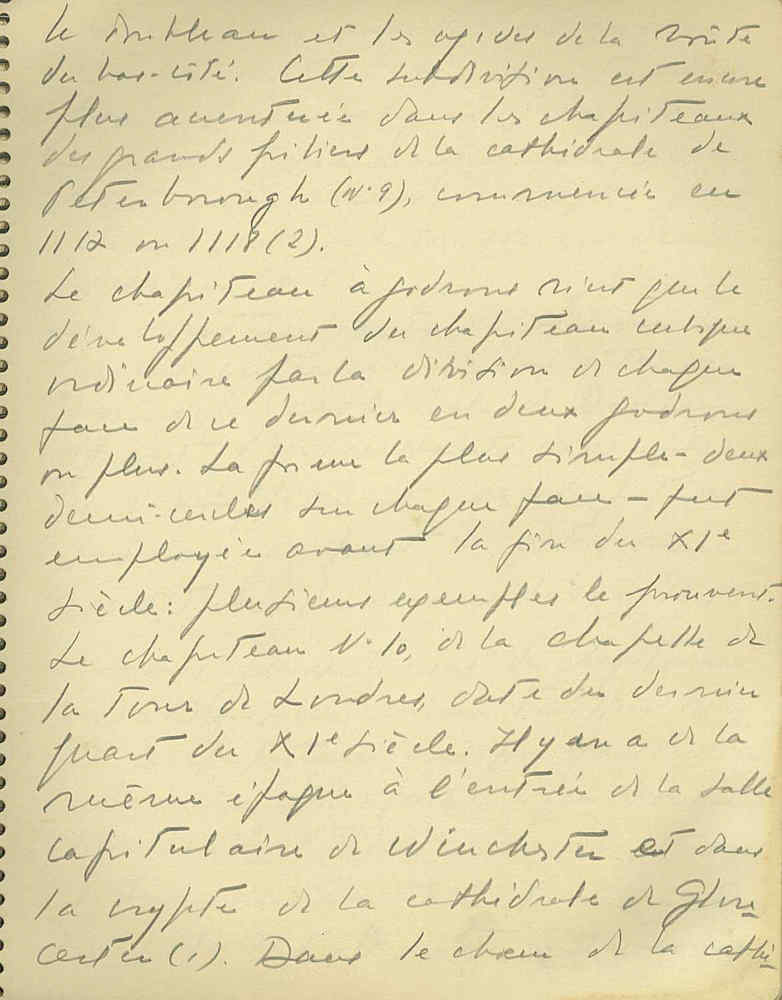 le doubleau et les ogives de la voûte
du bas-côté. Cette subdivision est encore
plus accentuée dans les chapiteaux
des grands piliers de la cathédrale de
Peterborough (N°9), commencée en
1117 ou 1118 (2).
Le chapiteau à godrons n'est que le
développement du chapiteau cubique
ordinaire par la division de chaque
face de ce dernier en deux godrons
ou plus. La forme la plus simple - deux
demi-cercles sur chaque face - fut
employée avant la fin du XIe
siècle: plusieurs exemples le prouvent.
Le chapiteau N°10, de la chapelle de
la Tour de Londres, date du dernier
quart du XIe siècle. Il y en a de la
même époque à l'entrée de la salle
capitulaire de Winchester et dans
la crypte de la cathédrale de Glou-
cester (1). Dans le chœur de la cathé-